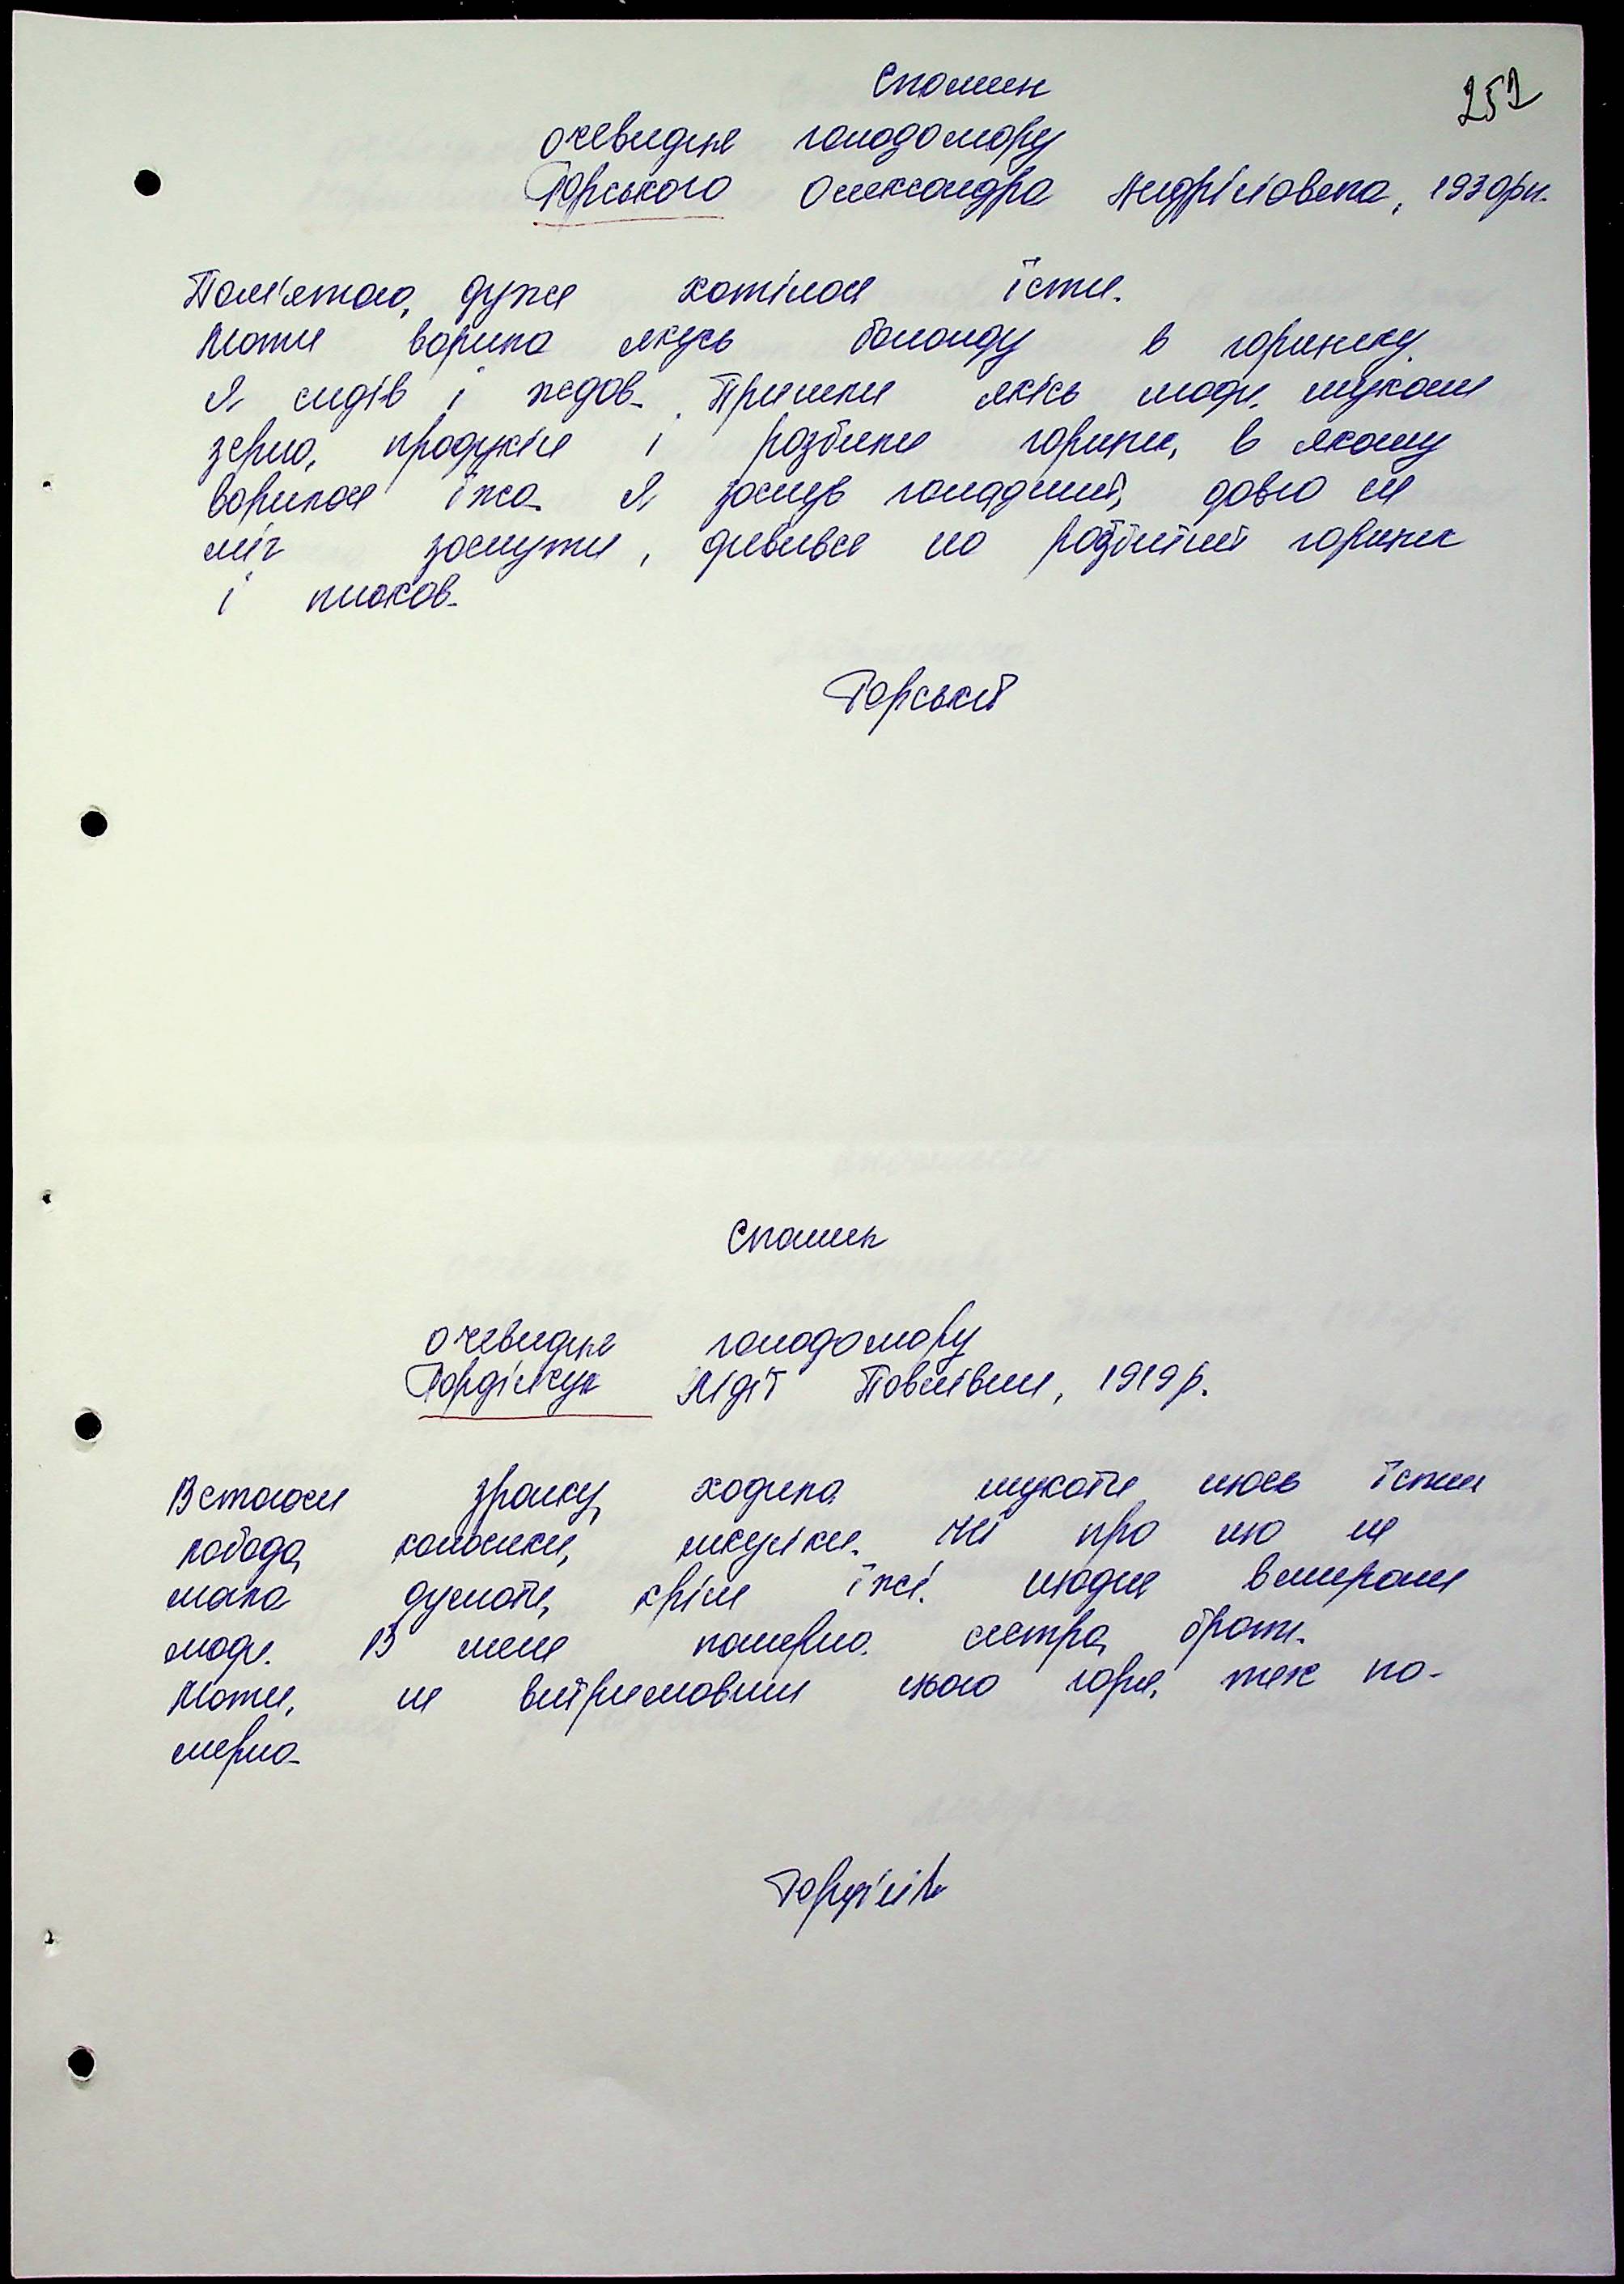 Спомин
252
очевидця голодомору
Горського Олександра Андрійовича, 1930рн.
Пам'ятаю, дуже хотілося їсти.
Мати варила якусь баланду в горщику.
Я сидів і ждав. Прийшли якісь люди, шукали
зерно, продукти і розбили горщик, в якому
варилася їжа. Я заснув голодний, довго не
міг заснути, дивився на розбитий горщик
і плакав.
Горський
Спомин
очевидця голодомору
Гордійчук Лідії Павлівни, 1919р.
Встаючи зранку, ходила шукати щось їсти
лобода, колоски, шкурки. Ні про що не
мала думати, крім їжі. щодня вмирали
люди. В мене померла сестра, брати.
Мати, не витримавши цього горя, теж по-
мерла.